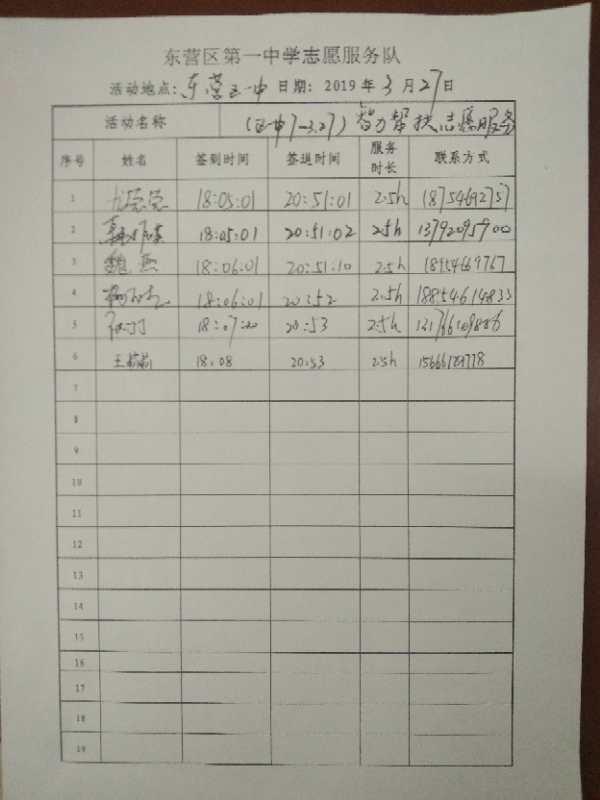 东营区第一中学志愿服务队
活动地点：东营区一中 日期：2019年3月27日
活动名称 （区中7-3.27）智力帮扶志愿服务
序号 姓名 签到时间 签退时间 服务时长 联系方式
1 18:05:01 20:51:01 2.5h
2 18:05:01 20:51:02 2.5h 13792095900
3 魏 18:06:01 20:51:10 2.5h
4 18:06:01 20:52 2.5h 18854614833
5 18:07:20 20:53 2.5h
6 王茹茹 18:08 20:53 2.5h
7
8
9
10
11
12
13
14
15
16
17
18
19